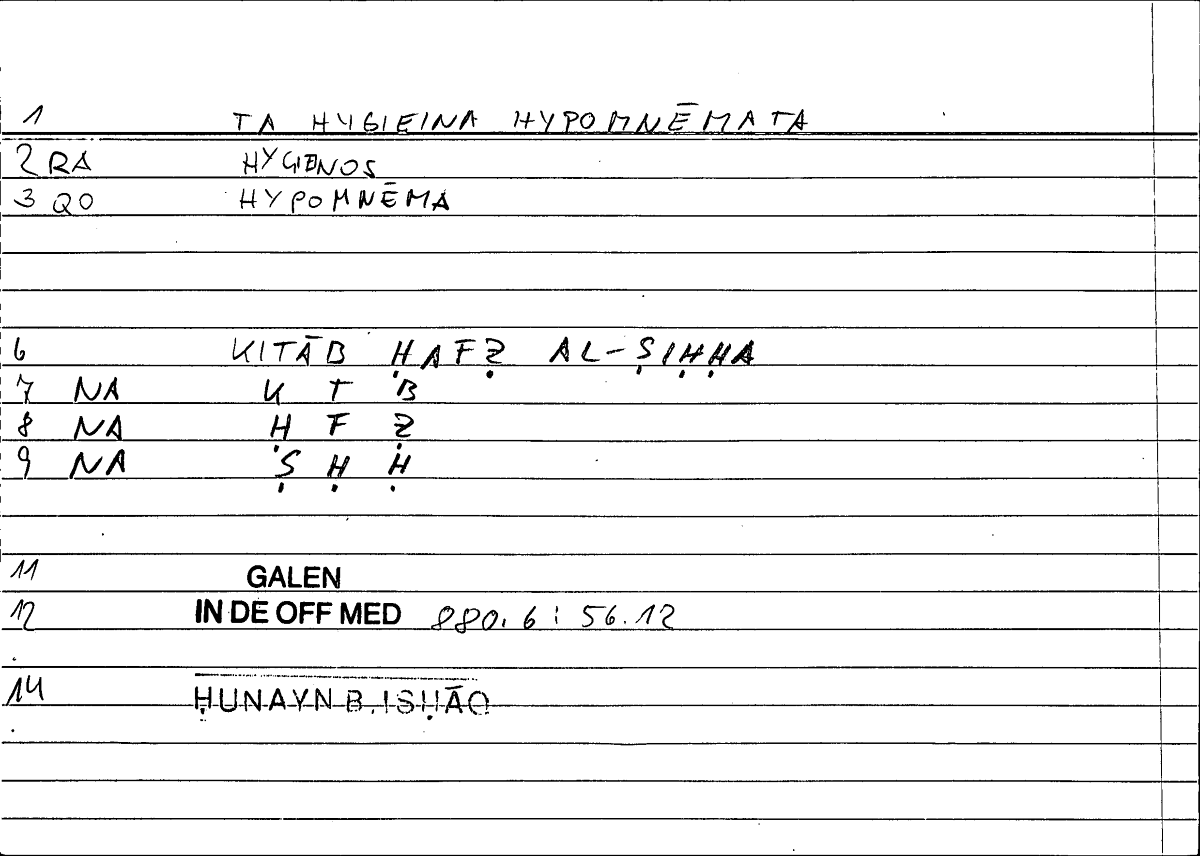 1 TA HYGIEINA HYPOMNĒMATA
2 RA HYGIENOS
3 QO HYPOMNĒMA
6 KITĀB ḤAFẒ AL-ṢIḤḤA
7 NA K T B
8 NA Ḥ F Ẓ
9 NA Ṣ Ḥ Ḥ
11 GALEN
12 IN DE OFF MED 880.6 : 56.12
14 ḤUNAYN B. ISḤĀQ